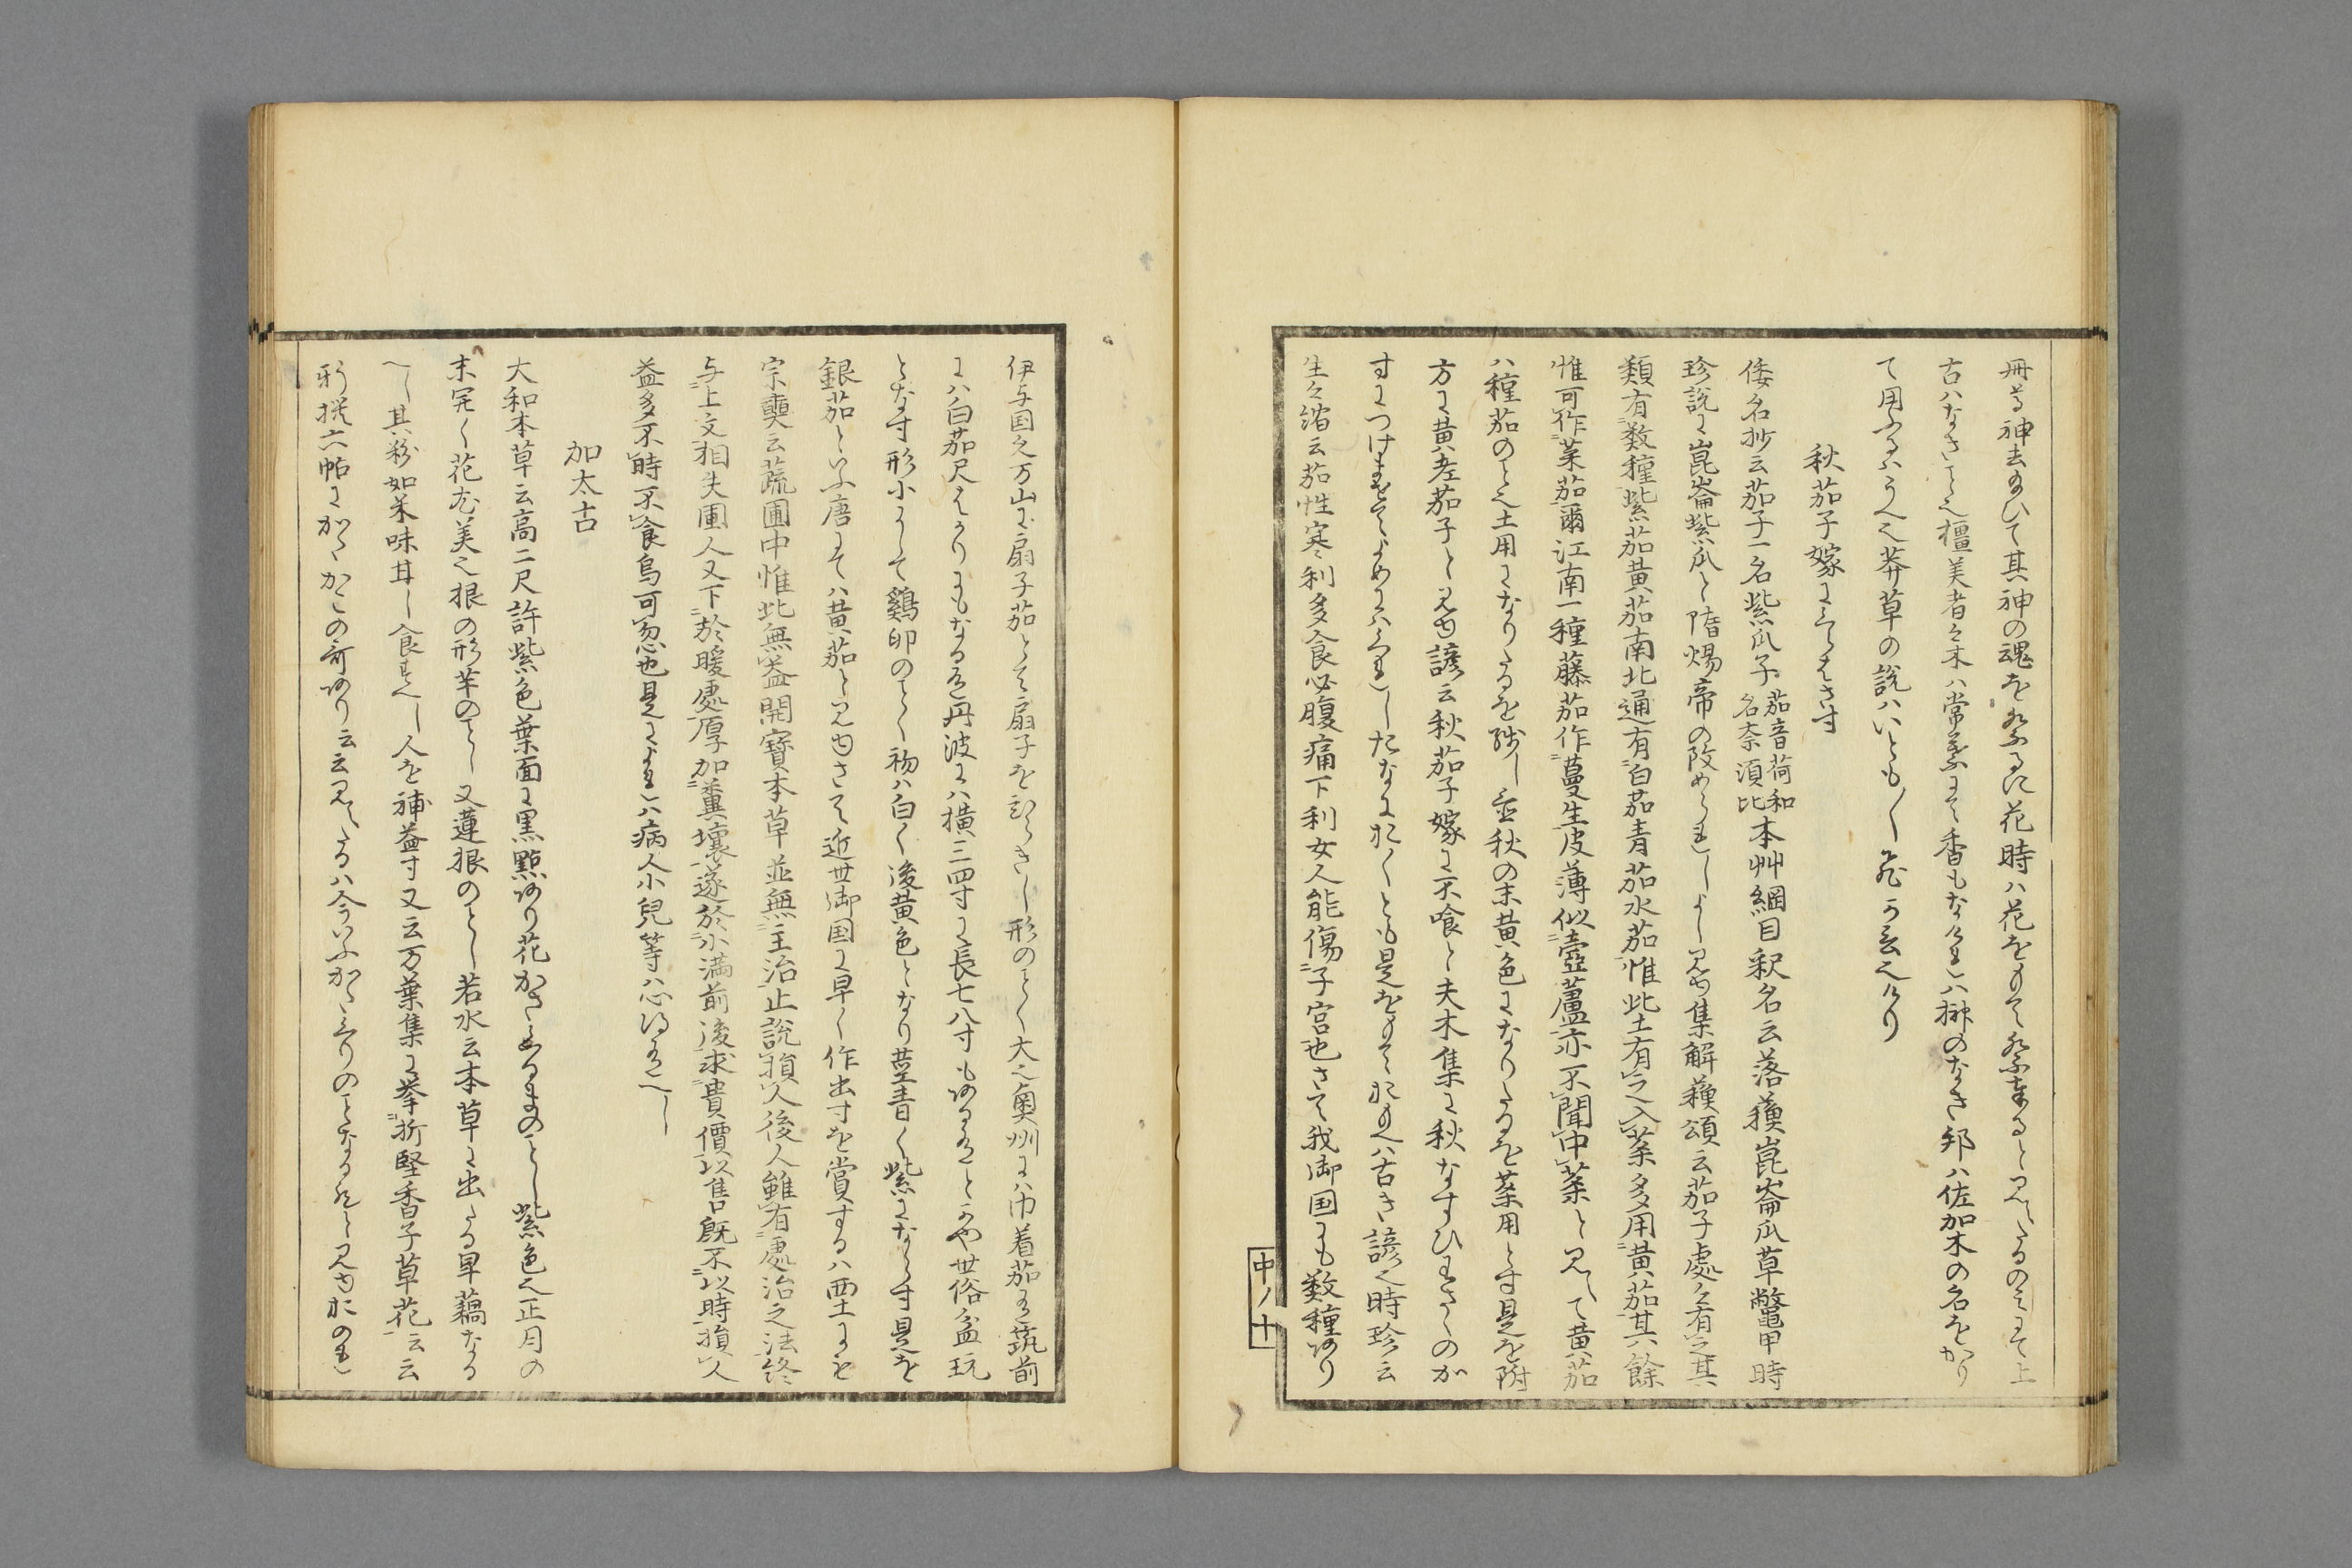 冊尊神去給ひて其神の魂を祭るに花時ハ花をもて祭奉ると見へたるのミにて上
古ハなきこと也檀美者ミ木ハ常葉にて香もなけれハ榊のなき邦ハ佐加木の名をかり
て用ふるハうへ也莽草の説ハいとも〱
秋茄子嫁にくらはさす
倭名抄云茄子一名紫瓜子 茄音荷和名奈須比 本艸綱目釈名云落蘓崑崙瓜草鼈甲時
珍説に崑崙紫瓜と隋煬帝の改められしよし見ゆ集解蘓頌云茄子處々有之其
類有数種紫茄黄茄南北通有白茄青茄水茄惟此土有之入薬多用黄茄其餘
惟可作菜茄爾江南一種藤茄作蔓生皮薄似壺蘆亦不聞中薬と見へて黄茄
ハ種茄のこと也土用になりたるを残し置秋の末黄色になりたるを薬用とす是を附
方に黄老茄子と見ゆ諺云秋茄子嫁に不喰と夫木集に秋なすひわさゝのか
すにつけませてよめにハくれしたなにおくとも是をもておもへハ古き諺也時珍云
生々㴑云茄性寒利多食必腹痛下利女人能傷子宮也さて我御国にも数種あり
中ノ十
伊与国之万山に扇子茄とて扇子をひらきし形のことく大也奥州にハ巾着茄有筑前
にハ白茄尺はかりにもなる有丹波にハ横三四寸に長七八寸もある有とかや世俗盆玩
となす形小にして鷄卵のことく初ハ白く後黄色となり莖青く紫にならす是を
銀茄といふ唐にてハ黄茄と見ゆさて近世御国に早く作出すを賞するハ西土にも
宗奭云蔬圃中惟此無益開寶本草並無主治止説損人後人雖有處治之法終
与上文相失圃人又下於暖處厚加糞壤遂於小満前後求貴價以售既不以時損人
益多不時不食烏可忽也是によれハ病人小兒等ハ心得有へし
加太古
大和本草云高二尺許紫色葉面に黒點あり花かさくるまのことし紫色也正月の
末開く花尤美也根の形芋のことし又蓮根のことし若水云本草に出たる旱藕なる
へし其粉如米味甘し食すへし人を補益す又云万葉集に挙折堅香子草花云云
新撰六帖にかたかこの哥あり云云見へたるハ今いふかたくりのことなるへしと見ゆおのれ